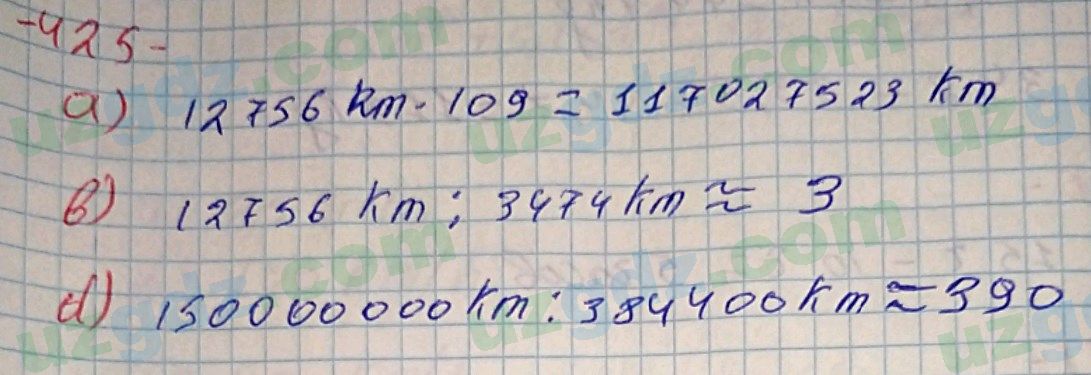 -425-
a) 12756 km · 109 = 117027523 km
b) 12756 km : 3474 km ≈ 3
d) 150000000 km : 384400 km ≈ 390